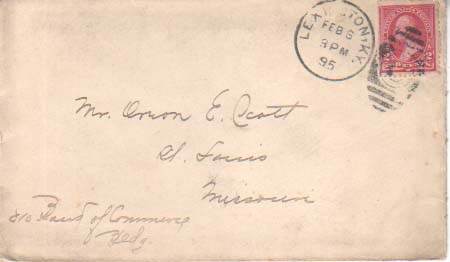 LEXINGTON, KY.
FEB 6
3 PM
95
Mr. Orion E. Scott
St. Louis
Missouri
810 Board of Commerce
Bldg.